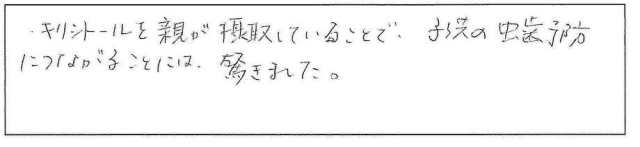 ・キリシトールを親が摂取していることで、子供の虫歯予防
につながることには、驚きました。